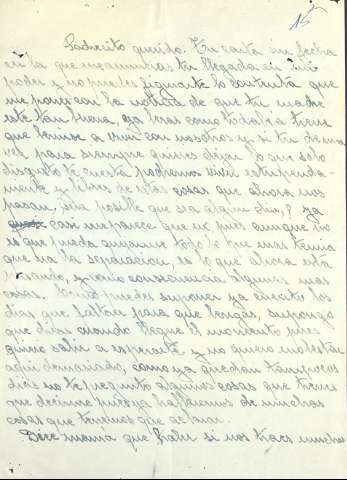 15
querido. Tu carta sin fecha
en la que me anuncias tu llegada en mi
poder y no puedes figurarte lo contenta que
me pongo con la noticia de que tu madre
este tan buena, ya veras como todavia tiene
que venirse a vivir con nosotros y si tu de una
vez para siempre quieres dejar lo que solo
disgusto te cuesta podremos vivir estupenda-
mente y libres de estas cosas que ahora nos
pasan, sera posible que sea algun dia,? ya
casi me parece que no pues aunque no
es que pueda quejarme todo lo que mas temia
que era la separacion, es lo que ahora esta
pasando, y como consecuencia algunas mas
cosas. Como puedes suponer ya cuento los
dias que faltan para que vengas, supongo
que diras cuando llegue el momento pues
quiero salir a esperarte y no quiero molestar
aqui demasiado, como ya quedan tan pocos
dias no te pregunto algunas cosas que tienes
que decirme pues ya hablaremos de muchas
cosas que tenemos que aclarar.
Dice mamá que si nos traes muchas